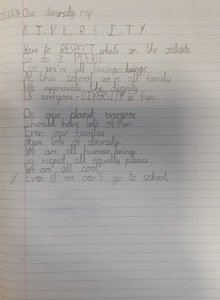 Our diversity rap
D.I.V.E.R.S.I.T.Y
Have to RESPECT what's on the outside
So do it PLEASE
Cos we're all human beings
At this school we're all family
We appreciate the dignity
Of everyone - DIVERSITY is fun
On our planet everyone
Should have lots of fun
Even our families
Have lots of diversity
We are all human beings
So respect all equally please
We are all cool
Even if we can't go to school